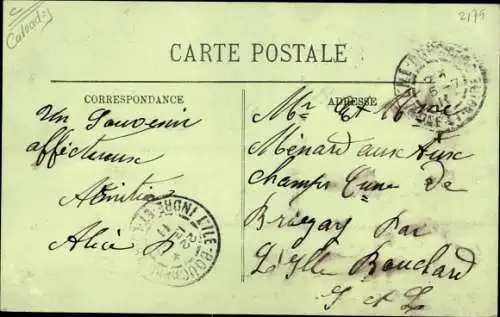 Calvados
2175
CARTE POSTALE
CORRESPONDANCE
ADRESSE
Un Souvenir
affectueux
Alice
L'ILE-BOUCHARD
INDRE-ET-L
Mr et Mme
Ménard aux
champs Cune de
Brizay Par
L'Ylle Bouchard
I et L